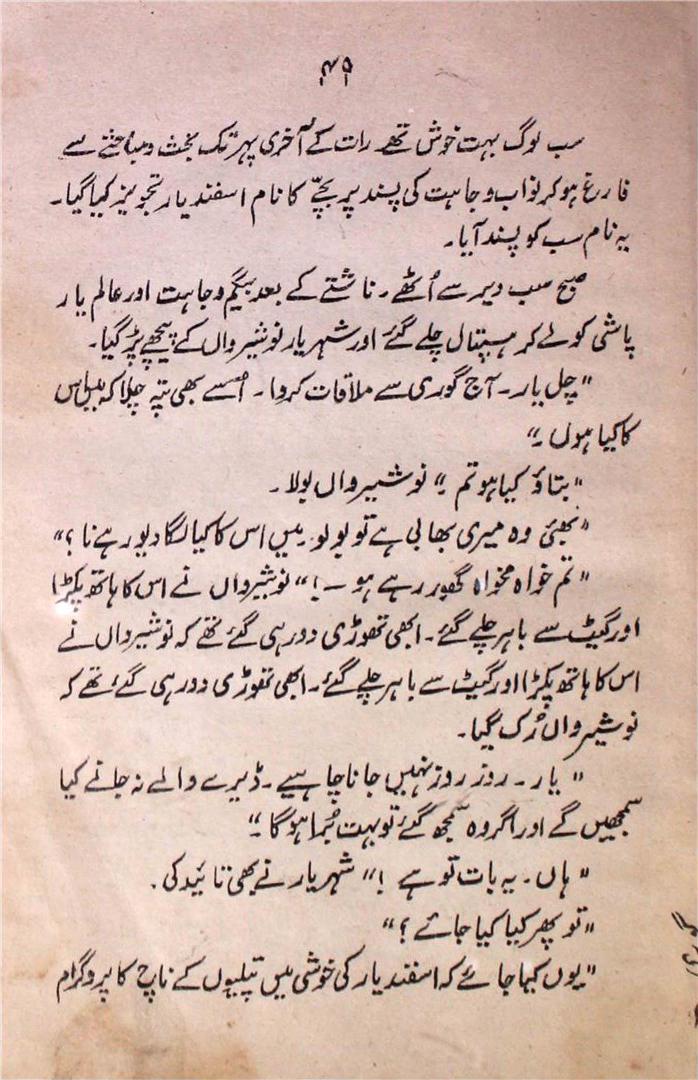 ۴۹
سب لوگ بہت خوش تھے رات کے آخری پہر تک بحث و مباحثے سے
فارغ ہو کر نواب وجاہت کی پسند پر بچّے کا نام اسفند یار تجویز کیا گیا۔
یہ نام سب کو پسند آیا۔
صبح سب دیر سے اُٹھے۔ ناشتے کے بعد بیگم وجاہت اور عالم یار
پاشی کو لے کر ہسپتال چلے گئے اور شہریار نوشیرواں کے پیچھے پڑ گیا۔
"چل یار۔ آج گوری سے ملاقات کروا۔ اُسے بھی پتہ چلا کہ میں اس
کا کیا ہوں۔"
"بتاؤ کیا ہو تم۔" نوشیرواں بولا۔
"بھئی وہ میری بھابی ہے تو بولو۔ میں اس کا کیا لگا دیور ہے نا؟"
"تم خواہ مخواہ گھور رہے ہو —!" نوشیرواں نے اس کا ہاتھ پکڑا
اور گیٹ سے باہر چلے گئے۔ ابھی تھوڑی دور ہی گئے تھے کہ نوشیرواں نے
اس کا ہاتھ پکڑا اور گیٹ سے باہر چلے گئے۔ ابھی تھوڑی دور ہی گئے تھے کہ
نوشیرواں رُک گیا۔
"یار۔ روز روز نہیں جانا چاہیے۔ ڈیرے والے نہ جانے کیا
سمجھیں گے اور اگر وہ سمجھ گئے تو بہت بُرا ہو گا۔"
"ہاں۔ یہ بات تو ہے!" شہریار نے بھی تائید کی۔
"تو پھر کیا کیا جائے؟"
"یوں کیا جائے کہ اسفند یار کی خوشی میں تپلیوں کے ناچ کا پروگرام